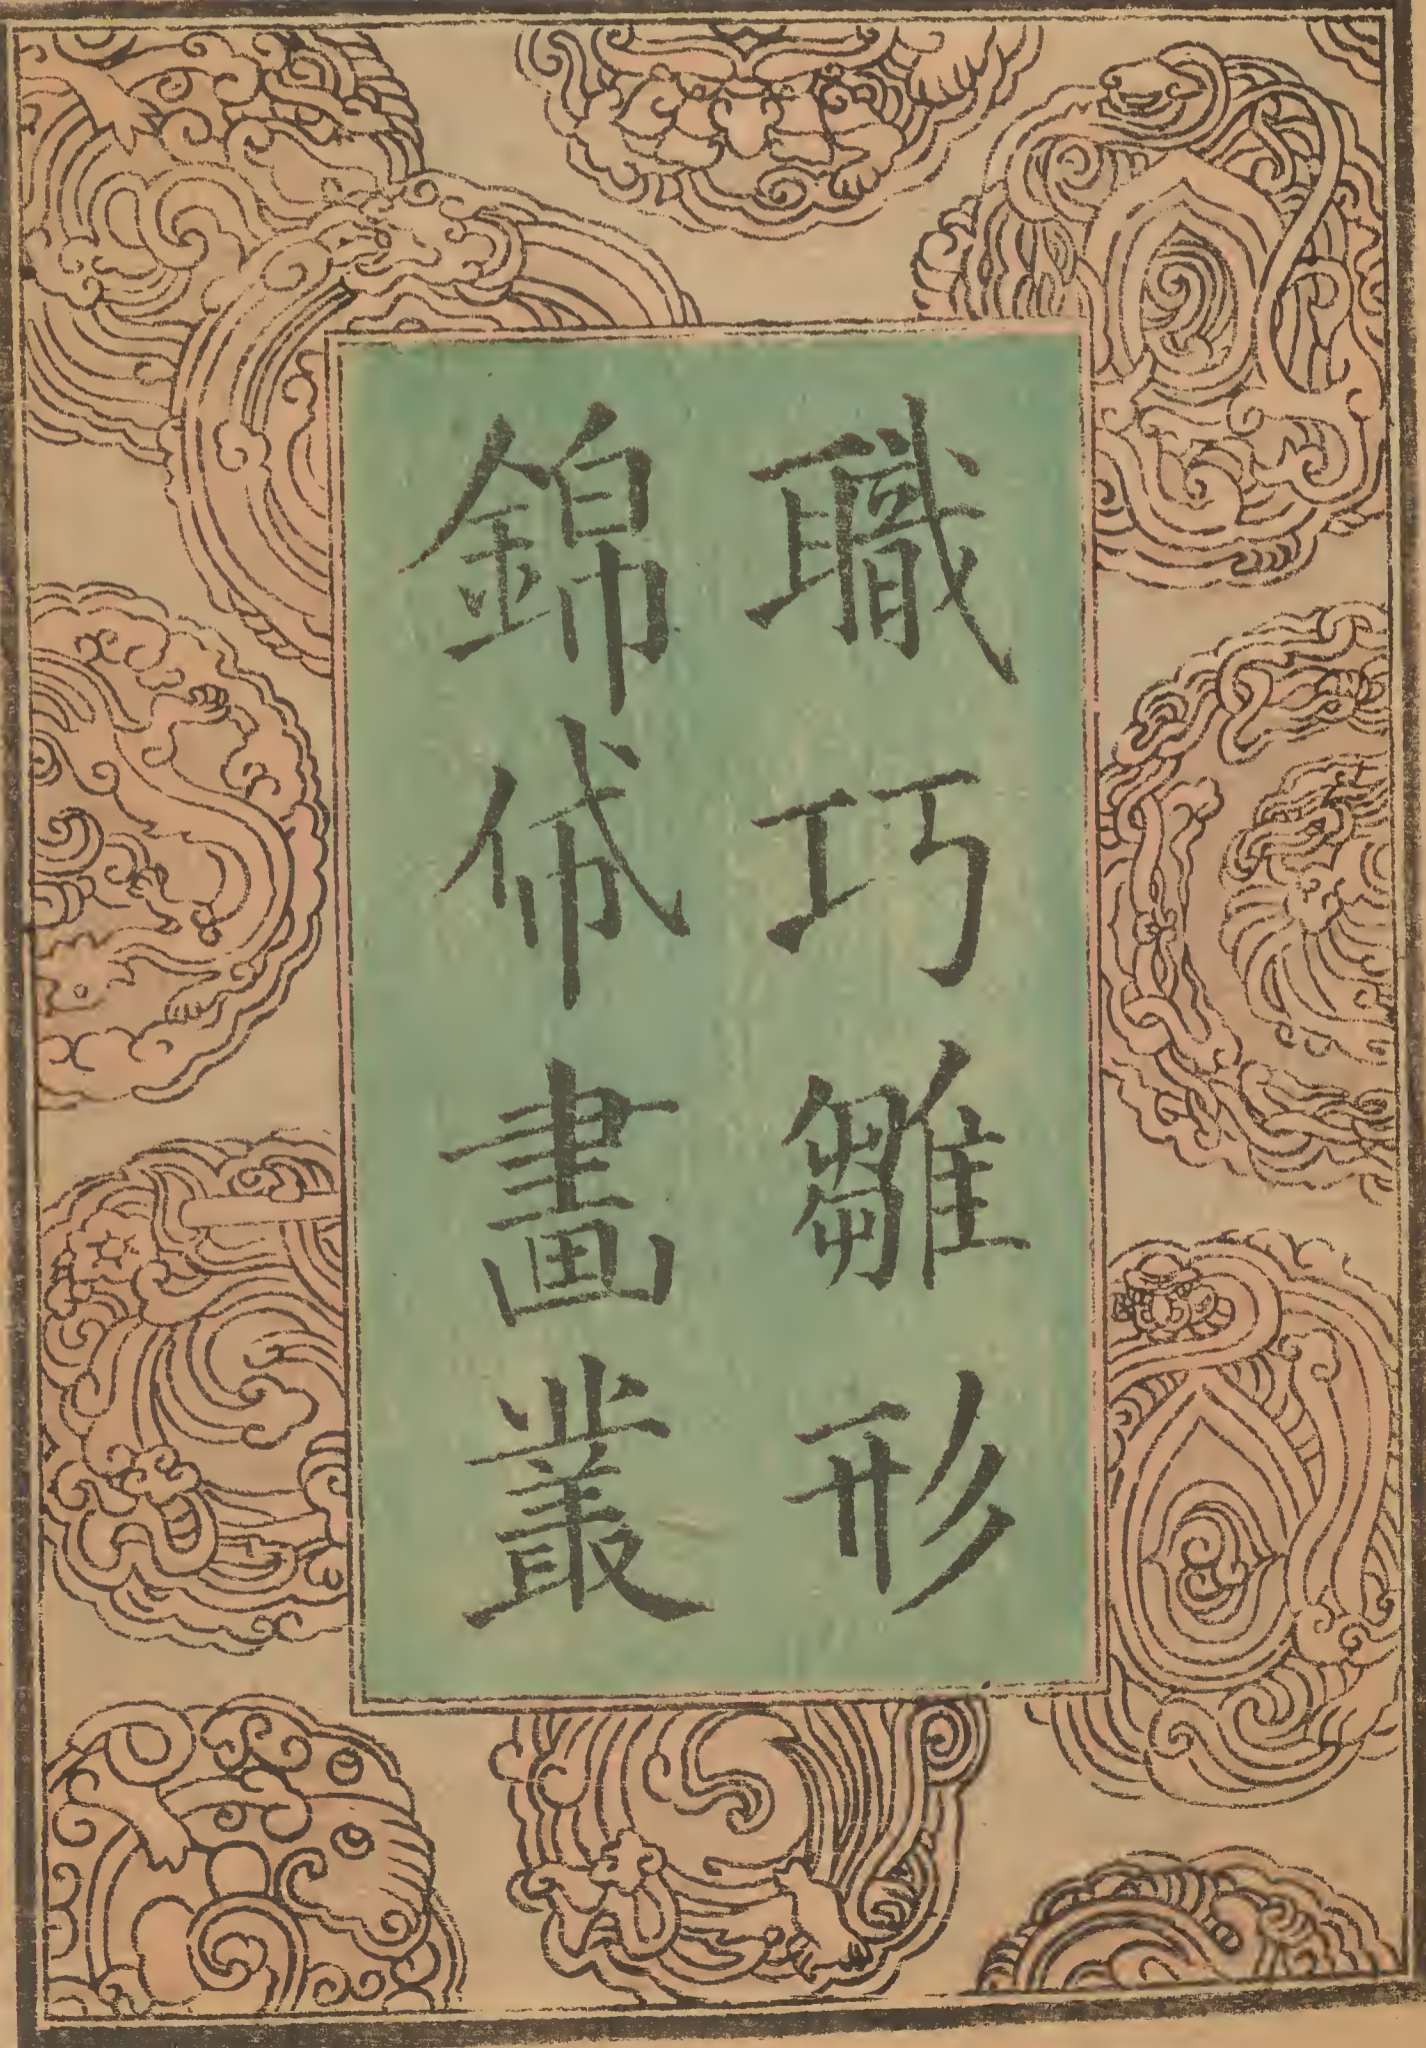 職巧雛形
錦帒畫叢